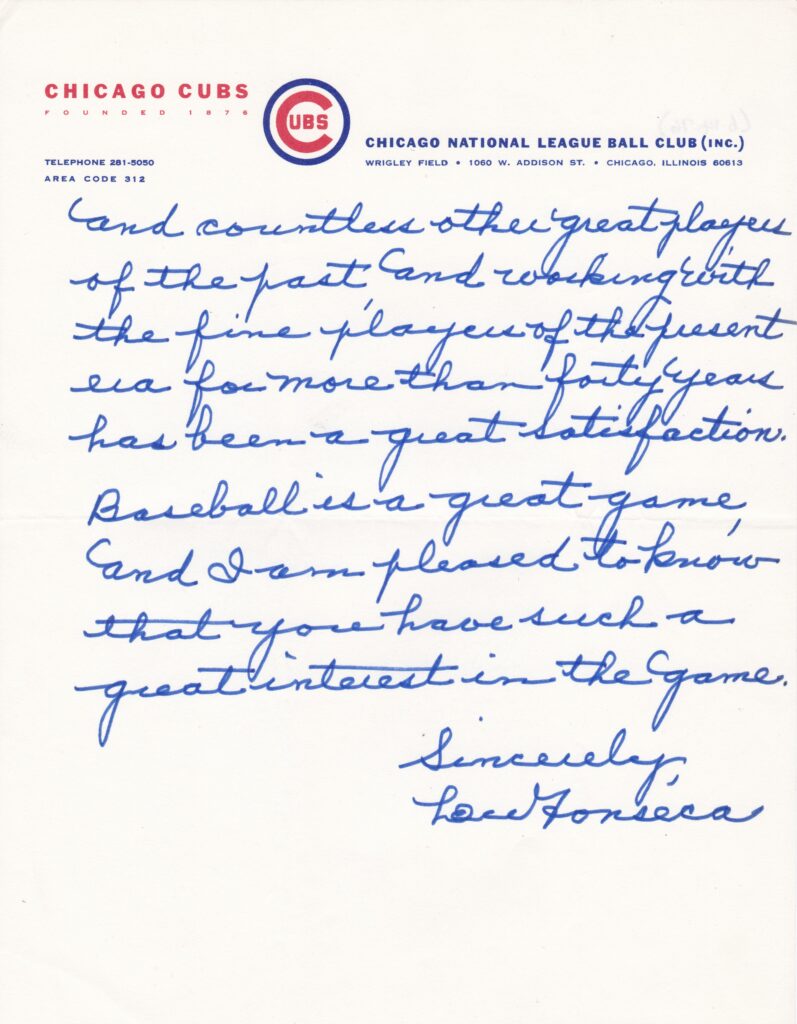 CHICAGO CUBS
FOUNDED 1876
CUBS
CHICAGO NATIONAL LEAGUE BALL CLUB (INC.)
WRIGLEY FIELD • 1060 W. ADDISON ST. • CHICAGO, ILLINOIS 60613
TELEPHONE 281-5050
AREA CODE 312
and countless other great players
of the past, and working with
the fine players of the present
era for more than forty years
has been a great satisfaction.
Baseball is a great game,
and I am pleased to know
that you have such a
great interest in the game.
Sincerely,
Lew Fonseca